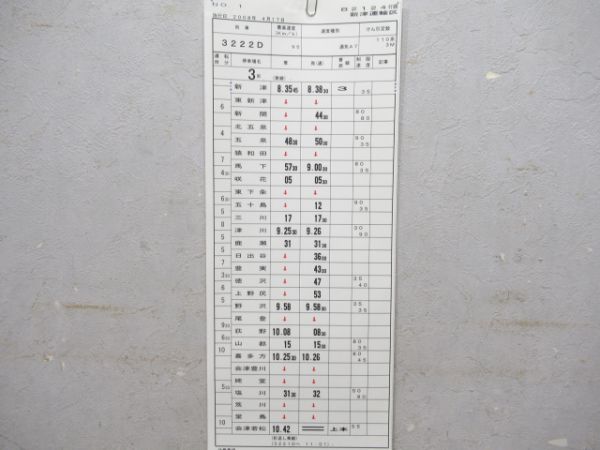 NO 1 82124行路
施行日 2008年 4月17日 新津運輸区
列車 最高速度(Km/h) 速度種別 けん引定数
3222D 95 通気A7 110系 3M
運転時分 停車場名 着 発(通) 着発線 制限速度 記事
3両
新津 8.35 45 8.38 30 3 35
東新津 ↓ ↓
6 新関 ↓ 44 30
北五泉 ↓ ↓
4 五泉 48 50 90 35
猿和田 ↓ ↓
馬下 57 9.00 80 35
咲花 05 05
東下条 ↓ ↓
五十島 ↓ 12 90 35
5 三川 17 17 30
津川 9.25 30 9.26 90
5 鹿瀬 31 31
5 日出谷 ↓ 36
豊実 ↓ 43
徳沢 ↓ 47 35 40
上野尻 ↓ 53
5 野沢 9.58 9.58 35
尾登 ↓ ↓
荻野 10.08 08
山都 15 15 80 35
10 喜多方 10.25 30 10.26 80 45
会津豊川 ↓ ↓
姥堂 ↓ ↓
塩川 31 32 50 80
笈川 ↓ ↓
堂島 ↓ ↓
10 会津若松 10.42 上本 55